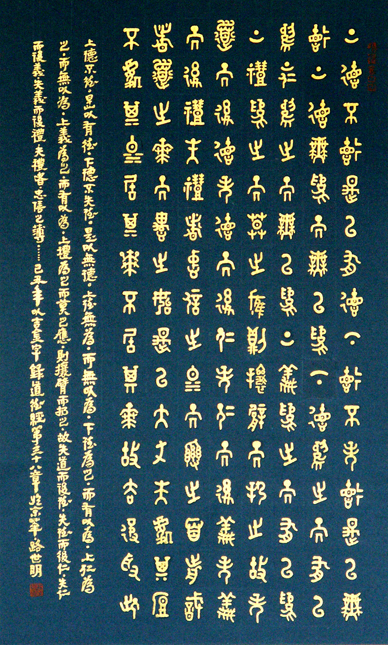 上德不德是以有德下德不失德是以無
德上德無為而無以為下德為之而有以
為上仁為之而無以為上義為之而有以為
上禮為之而莫之應則攘臂而扔之故失
道而後德失德而後仁失仁而後義失義
而後禮夫禮者忠信之薄而亂之首前識
者道之華而愚之始是以大丈夫處其厚
不處其薄居其實不居其華故去彼取此
上德不德，是以有德，下德不失德，是以無德。上德無為，而無以為，下德為之，而有以為。上仁為
之，而無以為，上義為之，而有以為，上禮為之而莫之應，則攘臂而扔之。故失道而後德，失德而後仁，失仁
而後義，失義而後禮，夫禮者，忠信之薄……己丑冬以吉金字錄道德經第三十八章於京華路世明